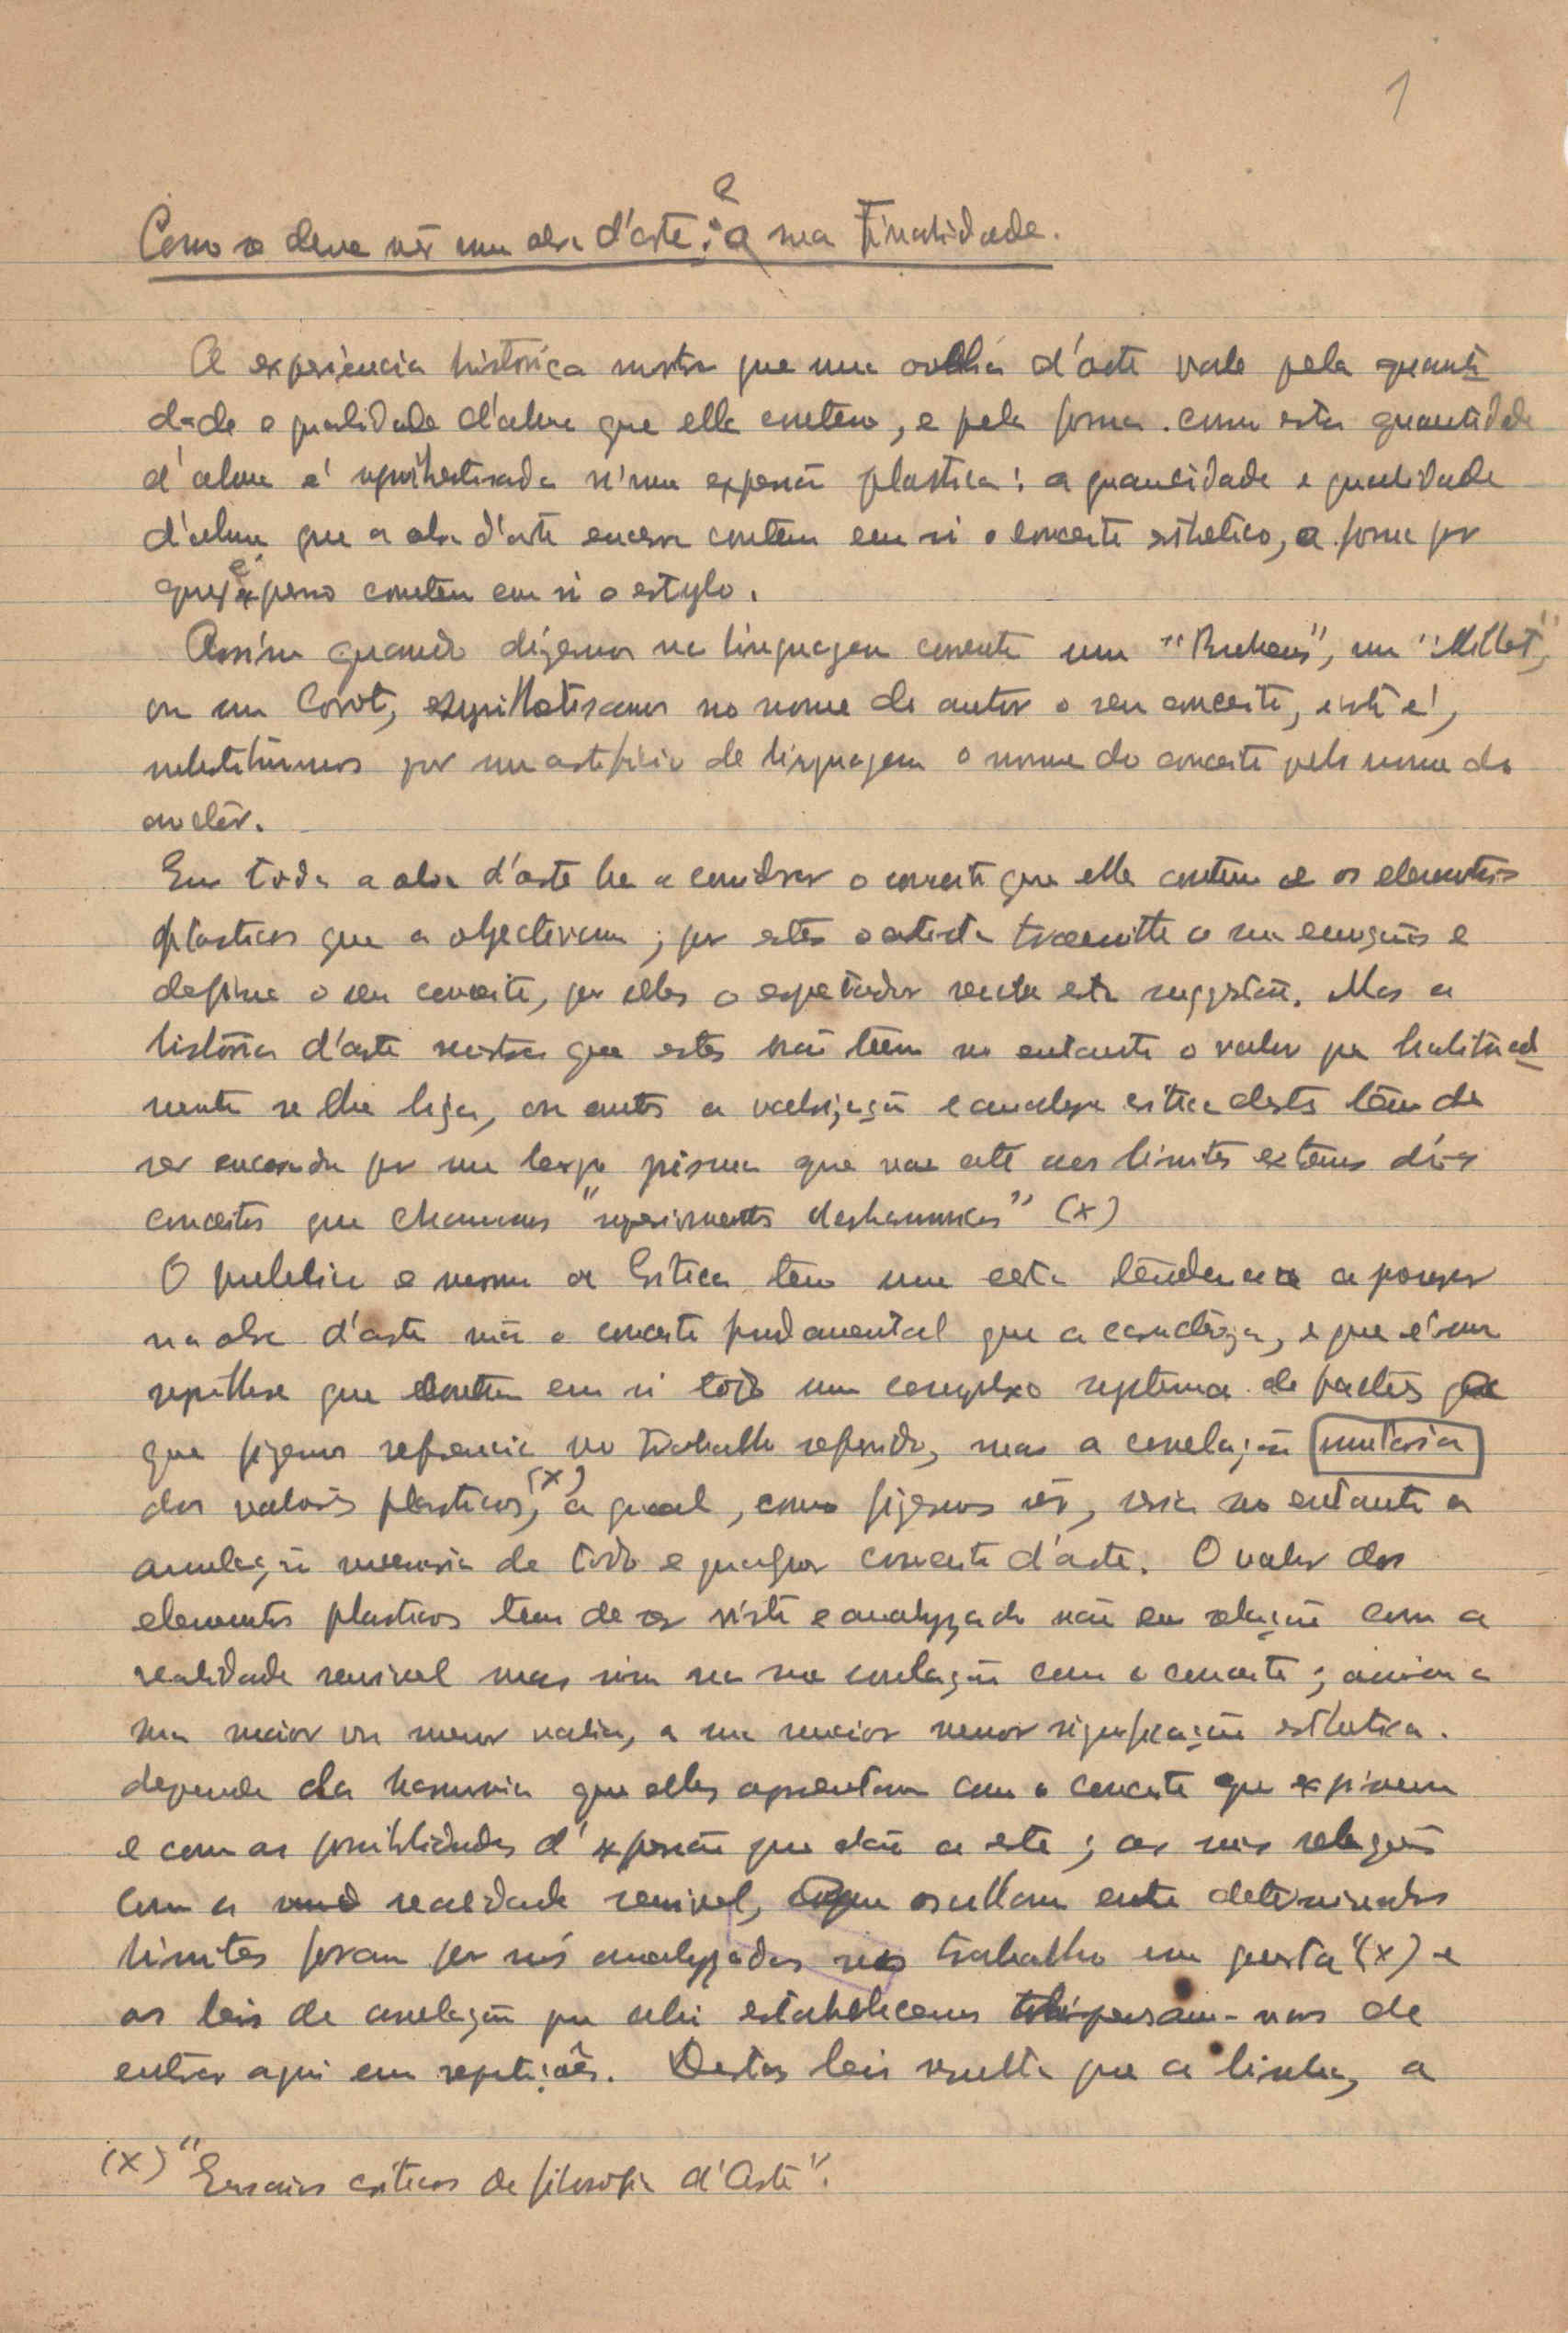 1
Como se deve vêr uma obra d'arte; e a sua Finalidade.
A experiencia historica mostra que uma obra d'arte vale pela quanti
dade e qualidade d'alma que ella contem, e pela forma como esta quantidade
d'alma é synthetisada n'uma expressão plastica: a quantidade e qualidade
d'alma que a obra d'arte encerra contem em si o conceito esthetico, a forma por
que é expresso contem em si o estylo.
Assim quando dizemos na linguagem corrente um "Rubens", um "Millet",
ou um Corot, synthetisamos no nome do autor o seu conceito, isto é,
substituimos por um artificio de linguagem o nome do conceito pelo nome do
auctor.
Em toda a obra d'arte ha a considerar o conceito que ella contem e os elementos
plasticos que a objectivam; por estes o artista transmitte a sua emoção e
define o seu conceito, por elles o espetador sente esta suggestão. Mas a
história d'arte mostra que estes não têem no entanto o valor que habitual
mente se lhe liga, ou antes a valorização e analyse critica destes têm de
ser encarada por um largo prisma que vae até aos limites extremos dos
conceitos que chamamos " desharmonicos" (x)
O publico e mesmo a Critica tem uma certa tendencia a
na obra d'arte não o conceito fundamental que a caracteriza, e que é uma
synthese que contem em si todo um complexo systema de factos
que fizemos referencia no trabalho referido, mas a correlação
dos valores plasticos, (x) a qual, como fizemos vêr, seria no entanto a
anulação necessaria de todo e qualquer conceito d'arte. O valor dos
elementos plasticos tem de ser visto e analyzado não em relação com a
realidade sensivel mas sim na sua correlação com o conceito; assim a
sua maior ou menor valia, a sua maior menor significação esthetica
depende da harmonia que elles apresentam com o conceito que exprimem
e com as possibilidades d'expressão que dão a este; as suas relações
com a realidade sensivel, oscillam entre determinados
limites foram por nós analyzadas no trabalho em questa "(x) e
as leis de correlação que ahi estabelecemos dispensam-nos de
entrar aqui em repetições. Destas leis resulta que a linha, a
(x) "Ensaios criticos de filosofia d'Arte".